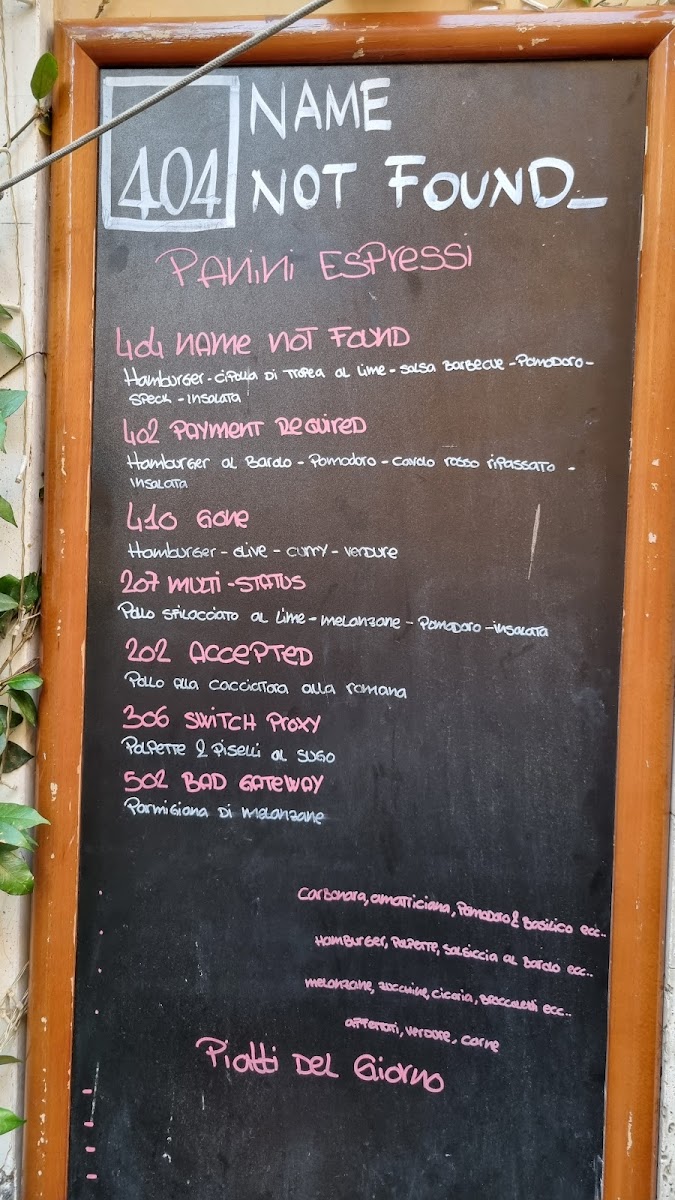 404
NAME
NOT FOUND_
PANINI ESPRESSI
404 NAME NOT FOUND
HAMBURGER - CIPOLLA DI TROPEA AL LIME - SALSA BARBECUE - POMODORO -
SPECK - INSALATA
402 PAYMENT REQUIRED
HAMBURGER AL BARDO - POMODORO - CAVOLO ROSSO RIPASSATO -
INSALATA
410 GONE
HAMBURGER - OLIVE - CURRY - VERDURE
207 MULTI-STATUS
POLLO SFILACCIATO AL LIME - MELANZANE - POMODORO - INSALATA
202 ACCEPTED
POLLO ALLA CACCIATORA ALLA ROMANA
306 SWITCH PROXY
POLPETTE & PISELLI AL SUGO
502 BAD GATEWAY
PARMIGIANA DI MELANZANE
CARBONARA, AMATRICIANA, POMODORO & BASILICO ECC..
HAMBURGER, POLPETTE, SALSICCIA AL BARDO ECC..
MELANZANE, ZUCCHINE, CICORIA, BROCCOLETTI ECC..
AFFETTATI, VERDURE, CARNE
PIATTI DEL GIORNO